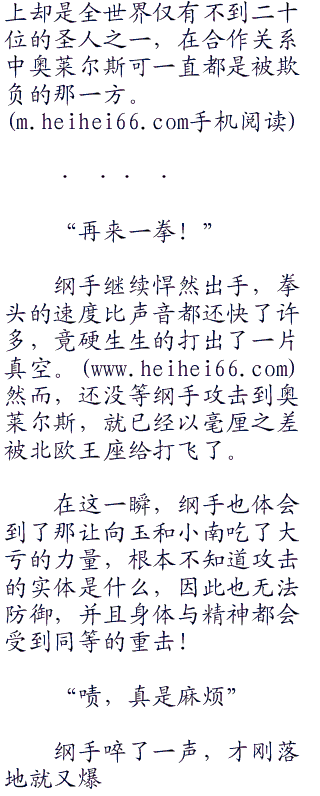 上却是全世界仅有不到二十
位的圣人之一，在合作关系
中奥莱尔斯可一直都是被欺
负的那一方。
(m.heihei66.com手机阅读)
. . . .
“再来一拳！”
纲手继续悍然出手，拳
头的速度比声音都还快了许
多，竟硬生生的打出了一片
真空。(www.heihei66.com)
然而，还没等纲手攻击到奥
莱尔斯，就已经以毫厘之差
被北欧王座给打飞了。
在这一瞬，纲手也体会
到了那让向玉和小南吃了大
亏的力量，根本不知道攻击
的实体是什么，因此也无法
防御，并且身体与精神都会
受到同等的重击！
“啧，真是麻烦”
纲手啐了一声，才刚落
地就又爆